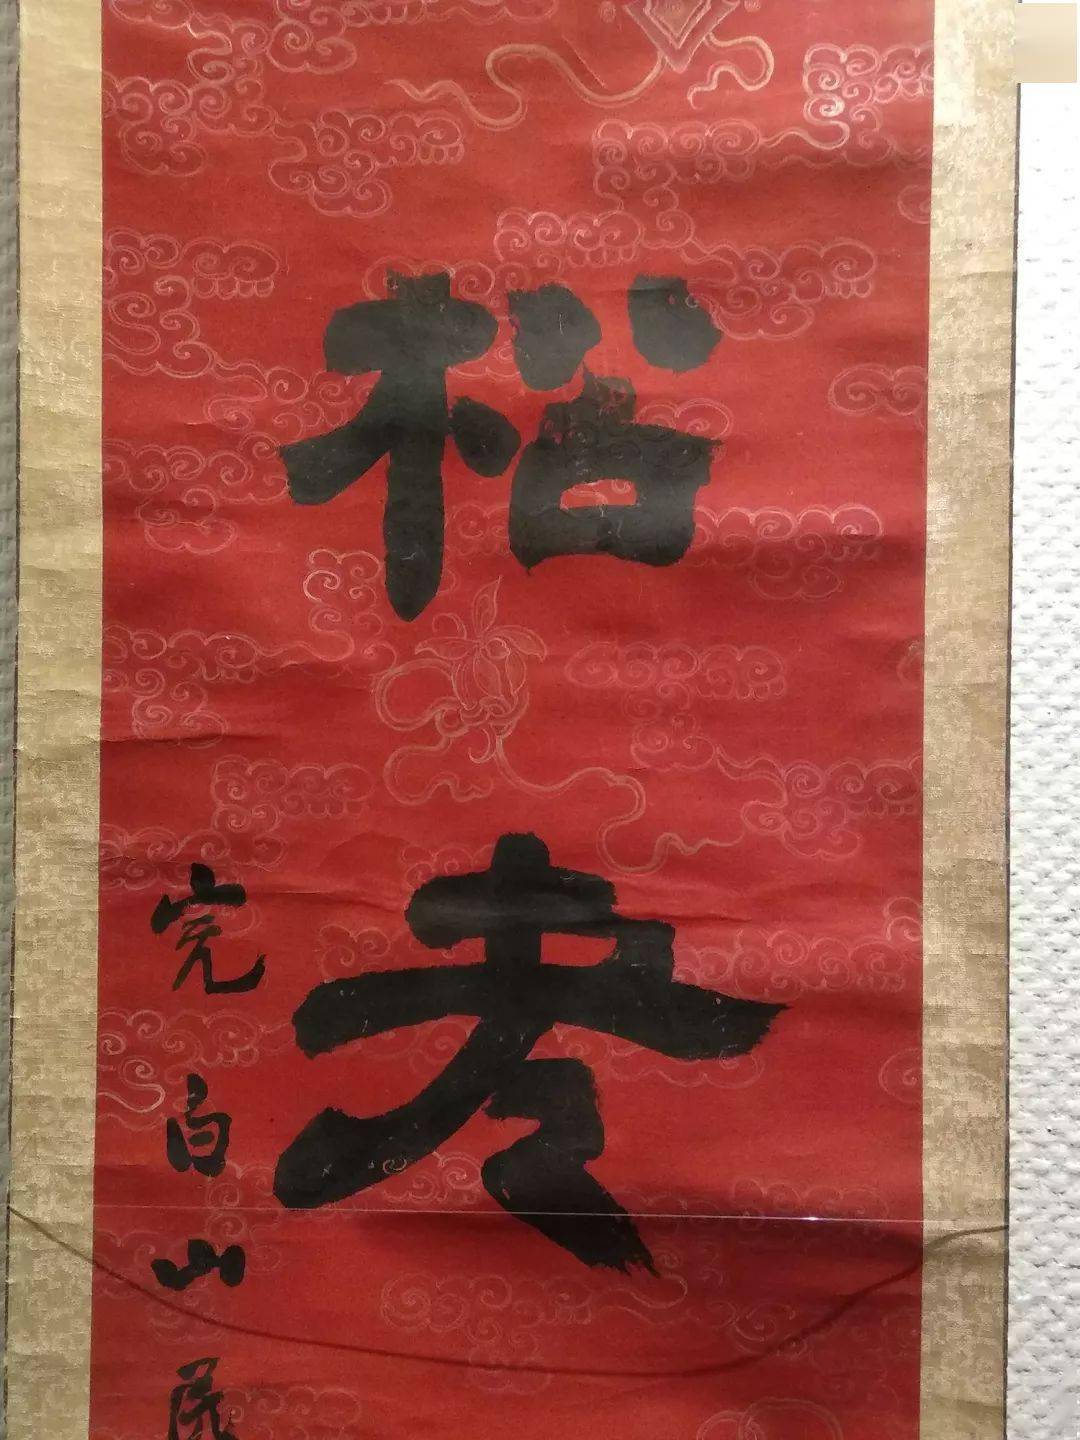 松
完白山民